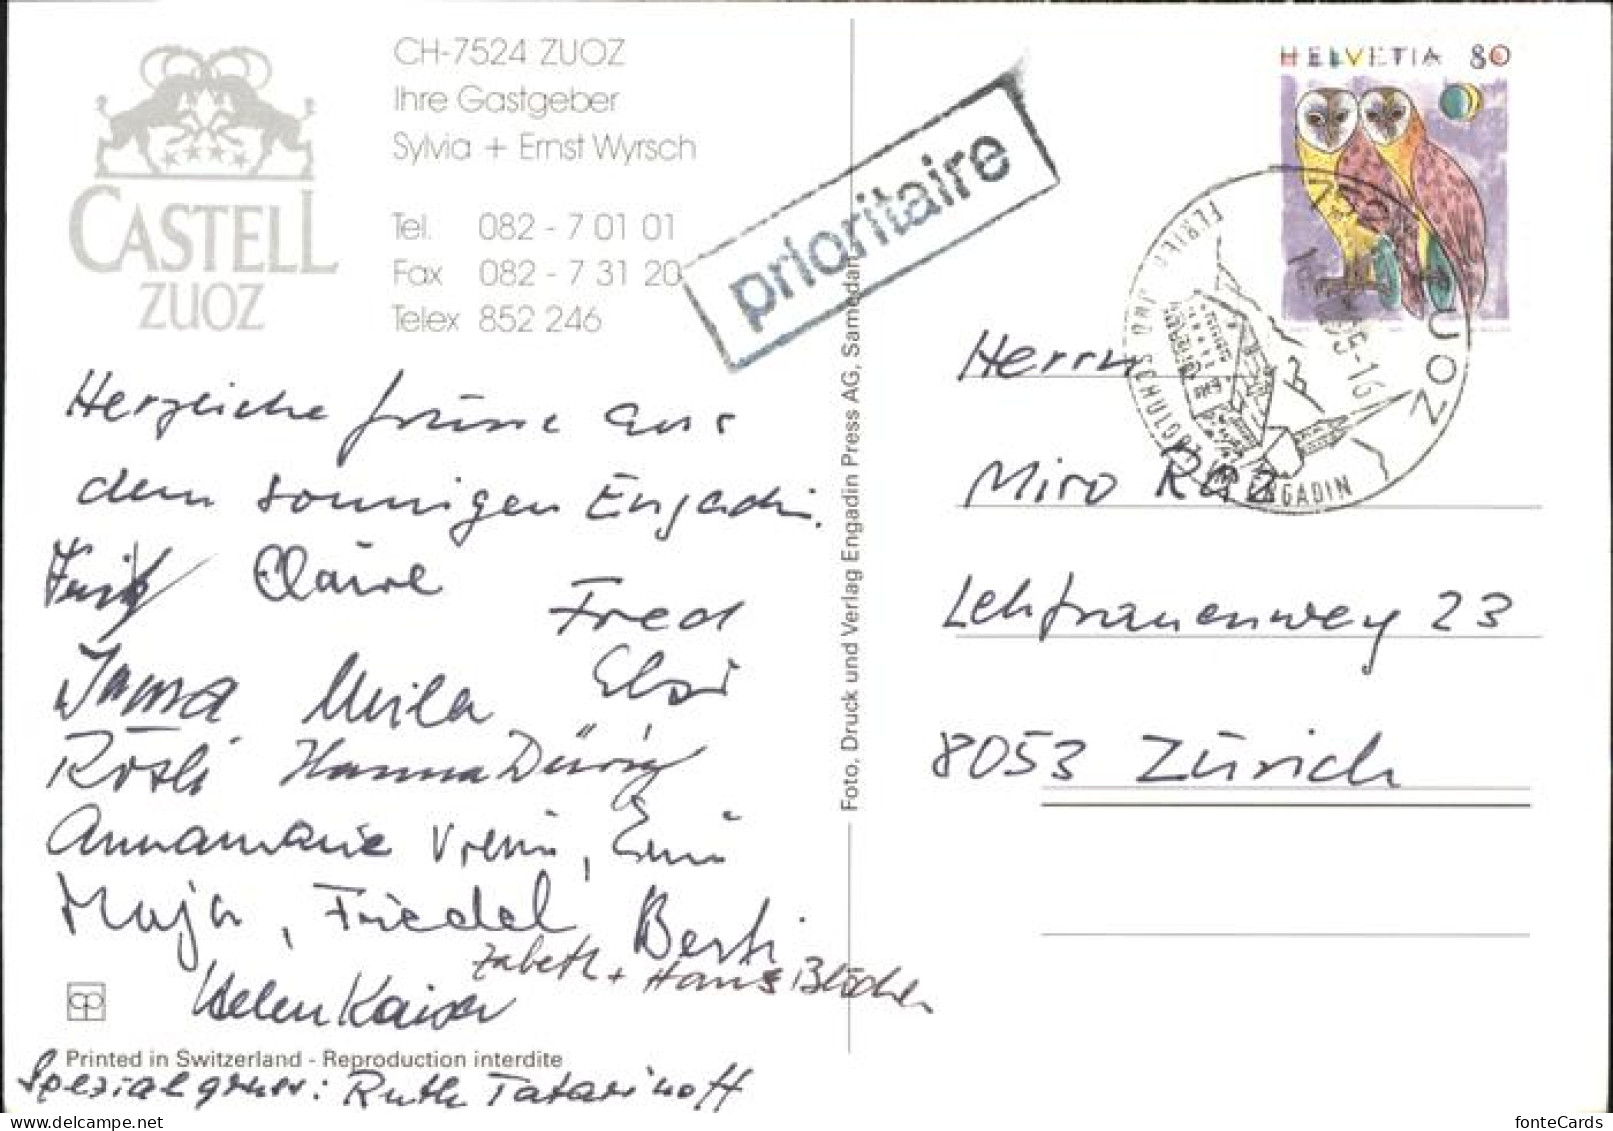 CH-7524 ZUOZ
Ihre Gastgeber
Sylvia + Ernst Wyrsch
CASTELL
ZUOZ
Tel. 082 - 7 01 01
Fax 082 - 7 31 20
Telex 852 246
prioritaire
HELVETIA 80
ZUOZ
ENGADIN
Herzliche Grüsse aus
dem sonnigen Engadin.
Fritz Claire
Fred
Irma Mila Elsi
Rösli Hanna Dürig
Annamarie Vreni, Erni
Maja, Friedel Berti
Zabeth + Hans Blöchen
Helen Kaiser
Printed in Switzerland - Reproduction interdite
Spezialgruss: Ruth Tatarinoff
Foto, Druck und Verlag Engadin Press AG, Samedan
Herrn
Miro Raz
Lehfrauenweg 23
8053 Zürich
fonteCards